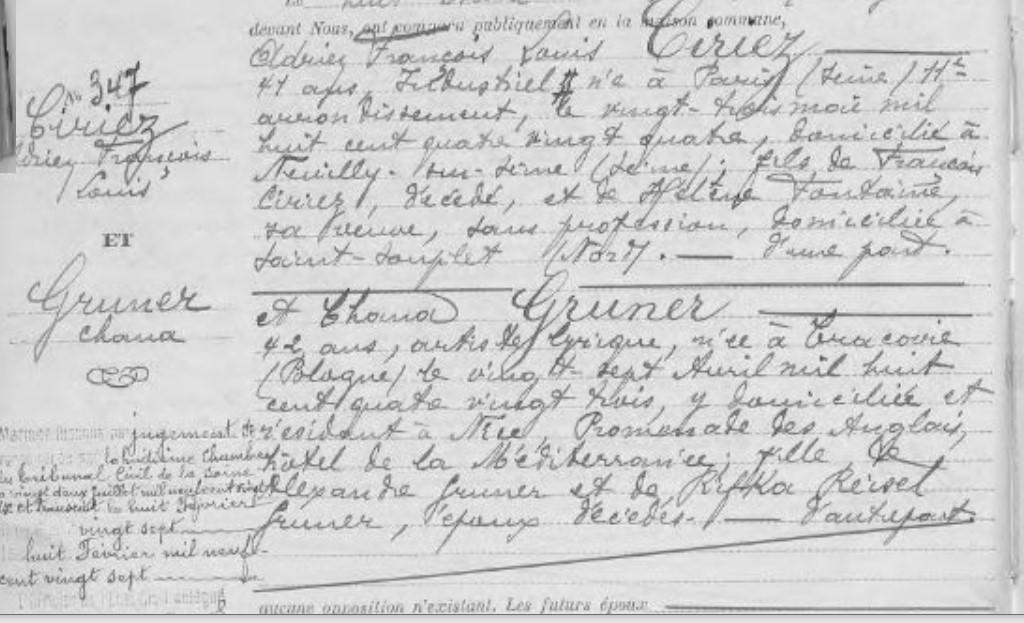 devant Nous, ont comparu publiquement en la maison commune,
Adrien François Louis Ciriez
41 ans, Industriel né à Paris (Seine) 11e
arrondissement, le vingt-trois mai mil
huit cent quatre vingt quatre, domicilié à
Neuilly-sur-Seine (Seine); fils de François
Ciriez, décédé, et de Hélène Fontaine,
sa veuve, sans profession, domiciliée à
Saint-Souplet (Nord). — d'une part.
No 347
Ciriez
Adrien François
Louis
ET
Gruner
Chana
et Chana Gruner
42 ans, artiste lyrique, née à Cracovie
(Pologne) le vingt-sept Avril mil huit
cent quatre vingt trois, y domiciliée et
résidant à Nice, Promenade des Anglais,
hôtel de la Méditerranée; fille de
Alexandre Gruner et de Rifka Reisel
Gruner, époux décédés. — d'autre part.
jugement de
la huitième Chambre
du Tribunal Civil de la Seine
vingt deux juillet mil neuf cent vingt
six et transcrit le huit Février
vingt sept
huit Février mil neuf-
cent vingt sept
aucune opposition n'existant. Les futurs époux